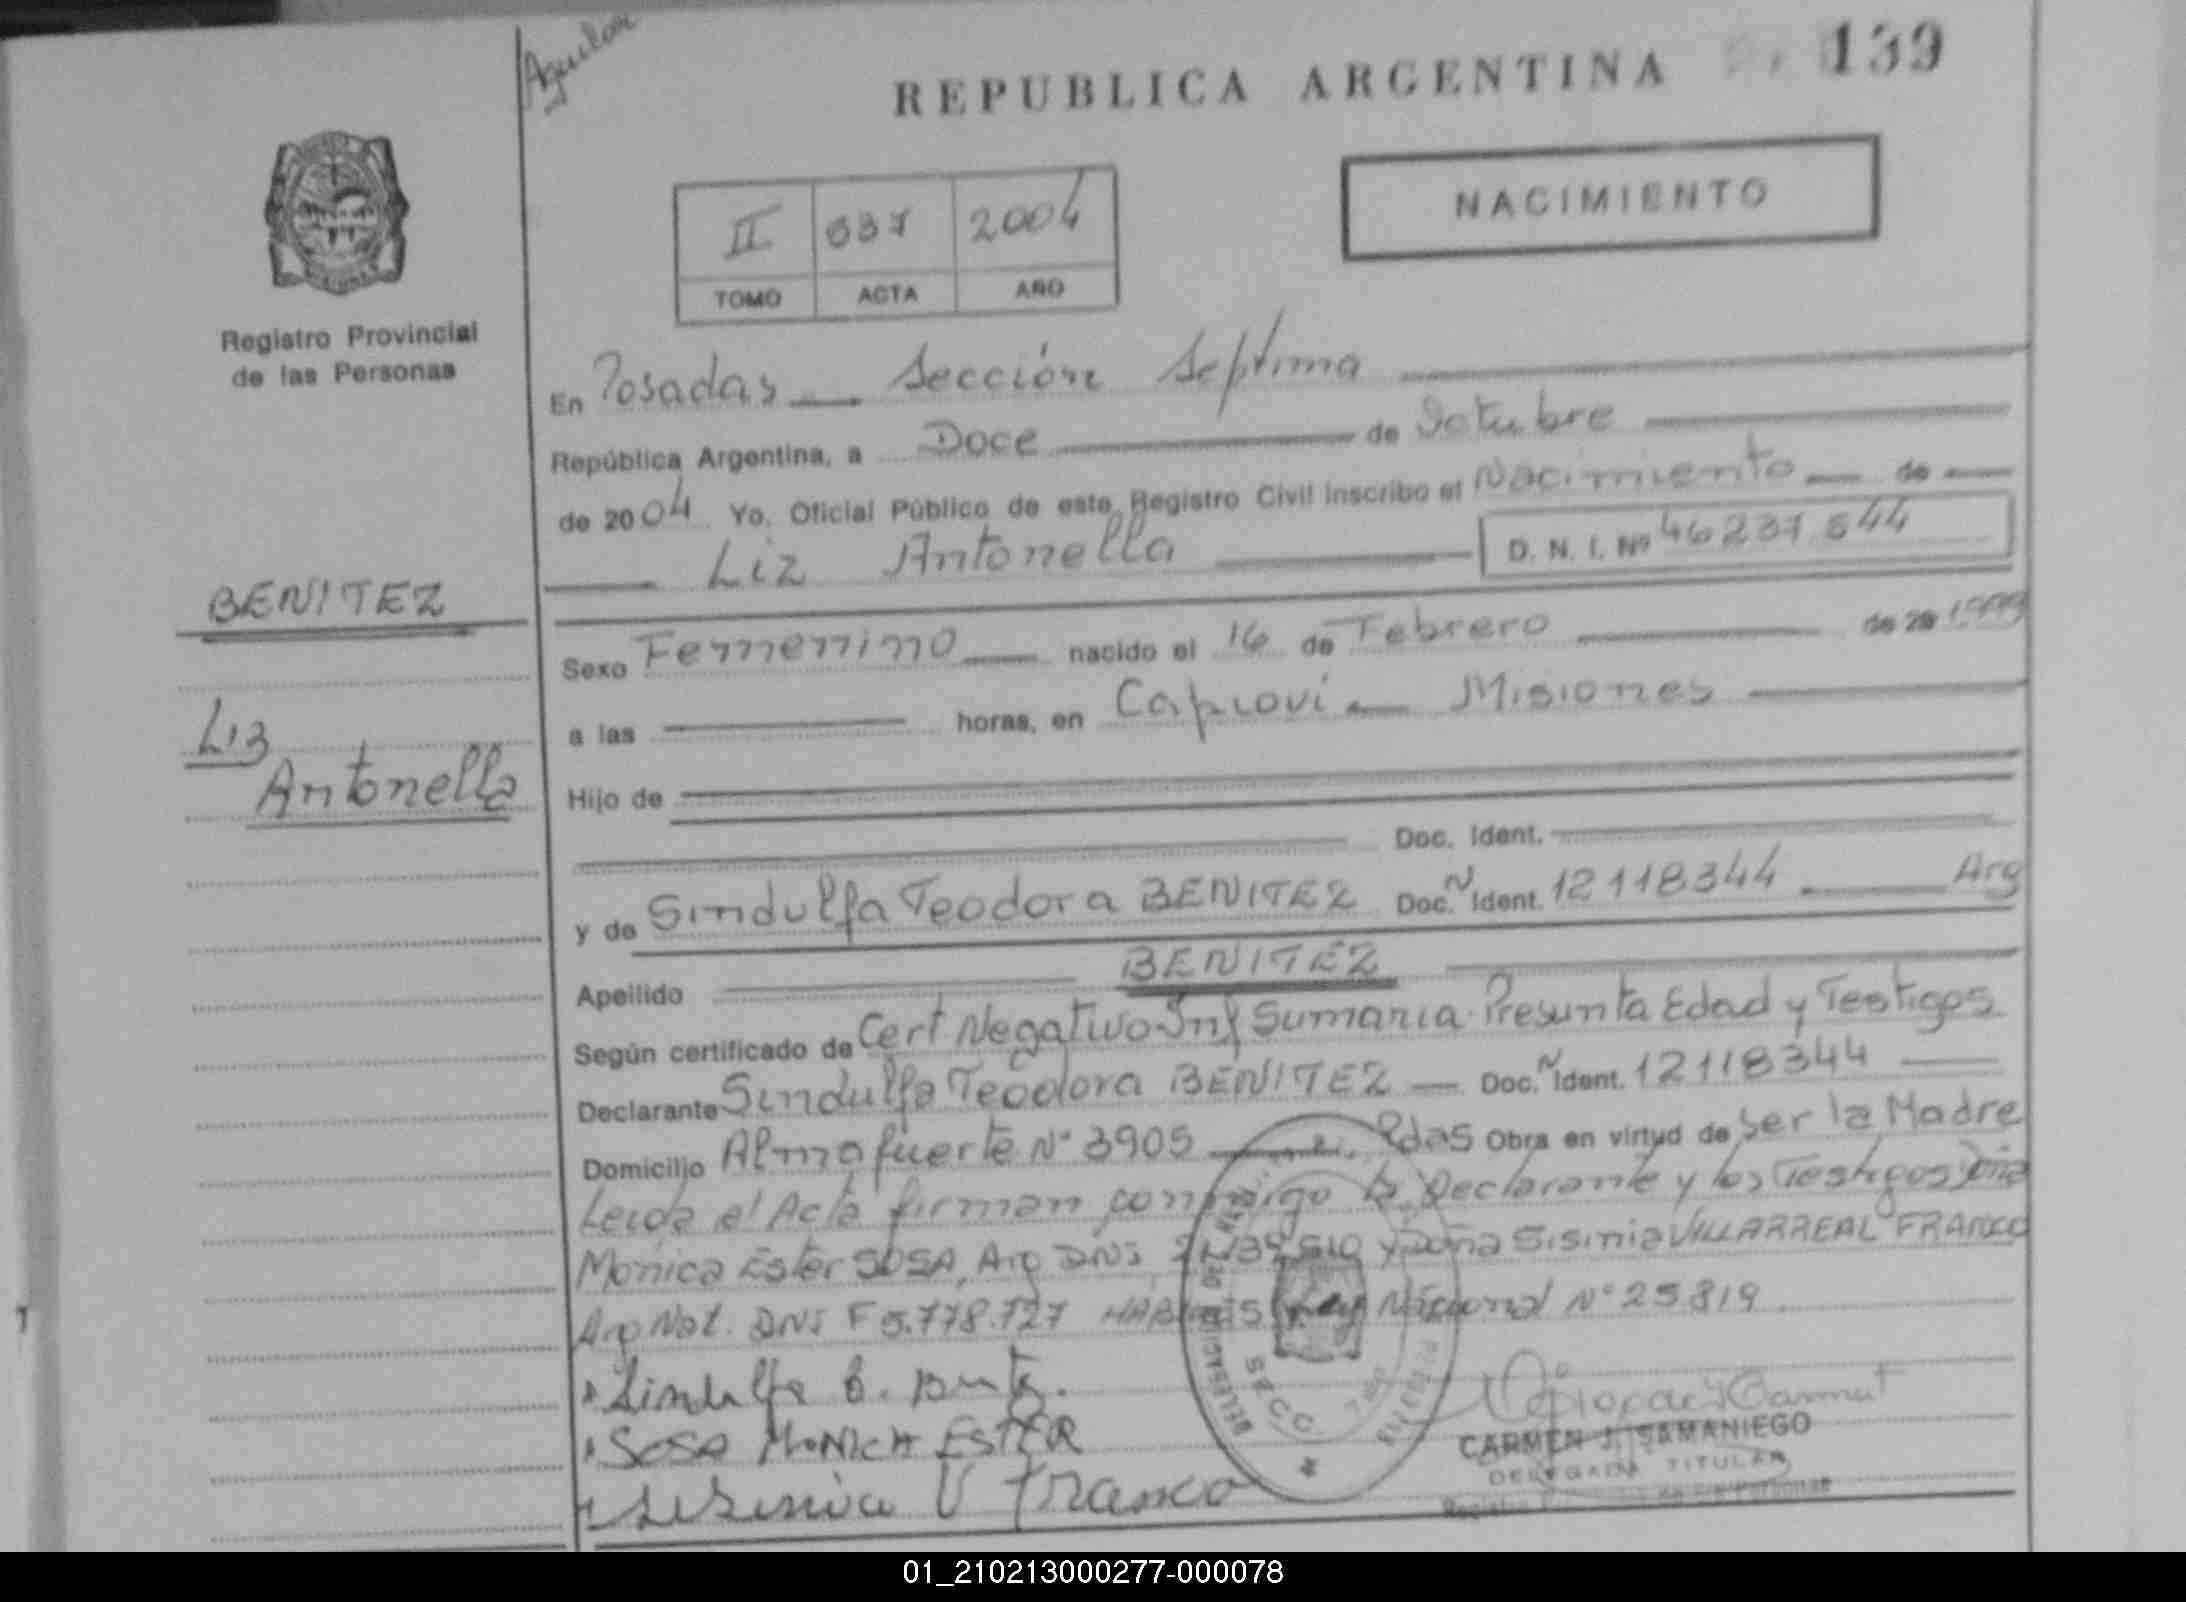 Aguilar
REPUBLICA ARGENTINA 139
NACIMIENTO
II 337 2004
TOMO ACTA AÑO
Registro Provincial
de las Personas
En Posadas Sección Septima
República Argentina, a Doce de Octubre
de 2004 Yo, Oficial Público de este Registro Civil inscribo el Nacimiento de
Liz Antonella D. N. I. Nº 46237544
BENITEZ
Liz
Antonella
Sexo Femenino nacido el 16 de Febrero de 20
a las horas, en Capiovi Misiones
Hijo de
Doc. Ident.
y de Sindulfa Teodora BENITEZ Doc. N Ident. 12118344 Arg
Apellido BENITEZ
Según certificado de Cert Negativo Inf Sumaria Presunta Edad y Testigos
Declarante Sindulfa Teodora BENITEZ Doc. N Ident. 12118344
Domicilio Almafuerte Nº 3905 Pdas Obra en virtud de Ser la Madre
Leida el Acta firman conmigo la Declarante y los Testigos Doña
Monica Ester SOSA, Arg DNI y Doña Sisinia VILLARREAL FRANCO
Arg Nat. DNI F 5.778.727 HABILES Ley Nacional Nº 25819
Sindulfa
SOSA MONICA ESTER
Sisinia V Franco
SECC.
CARMEN J. SAMANIEGO
DELEGADA TITULAR
01_210213000277-000078